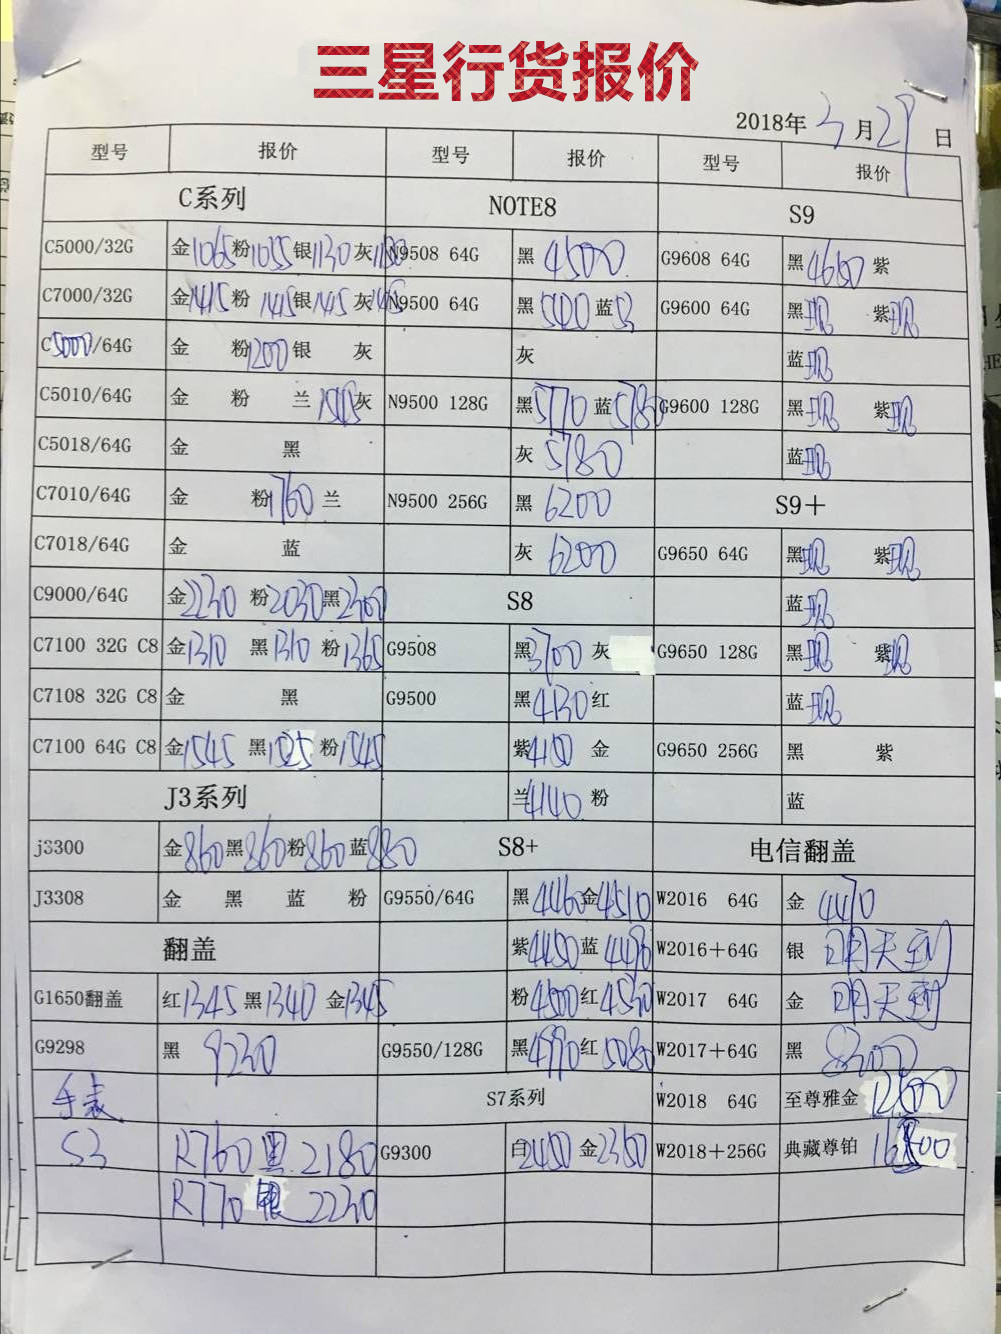 三星行货报价
2018年3月29日
型号 报价 型号 报价 型号 报价
C系列 NOTE8 S9
C5000/32G 金1065 粉1055 银1130 灰 N9508 64G 黑4500 G9608 64G 黑4660 紫
C7000/32G 金1415 粉1415 银1415 灰1415 N9500 64G 黑 蓝 G9600 64G 黑现 紫现
C5000/64G 金 粉1200 银 灰 灰 蓝现
C5010/64G 金 粉 兰 灰 N9500 128G 黑5770 蓝5780 G9600 128G 黑现 紫现
C5018/64G 金 黑 灰5780 蓝现
C7010/64G 金 粉1760 兰 N9500 256G 黑6200 S9+
C7018/64G 金 蓝 灰6200 G9650 64G 黑现 紫现
C9000/64G 金2230 粉2030 黑2300 S8 蓝现
C7100 32G C8 金1310 黑1310 粉1365 G9508 黑3700 灰 G9650 128G 黑现 紫现
C7108 32G C8 金 黑 G9500 黑4130 红 蓝现
C7100 64G C8 金1545 黑1525 粉1545 紫4150 金 G9650 256G 黑 紫
J3系列 兰4140 粉 蓝
j3300 金860 黑860 粉860 蓝880 S8+ 电信翻盖
J3308 金 黑 蓝 粉 G9550/64G 黑4460 金4510 W2016 64G 金4470
翻盖 紫4450 蓝4490 W2016+64G 银 明天到
G1650翻盖 红1345 黑1340 金1345 粉4500 红4530 W2017 64G 金 明天到
G9298 黑 9230 G9550/128G 黑4990 红5080 W2017+64G 黑 8300
手表 S7系列 W2018 64G 至尊雅金
S3 R760 黑 2180 G9300 白2450 金2350 W2018+256G 典藏尊铂
R770 银 2230